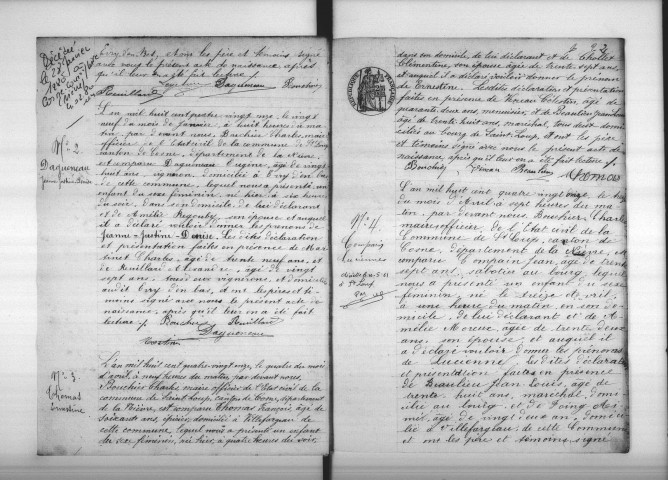 d'Evry den Bas, et ont les père et témoins, signé
avec nous le présent acte de naissance après
qu'il leur en a été fait lecture
Daguneau Bouchier
Rouillard
N° 2.
Daguneau
Jeanne Justine Denise
L'an mil huit cent quatre vingt onze, le vingt
neuf du mois de Janvier, à huit heures du ma
tin, par devant nous, Bouchier Charles, maire
officier de l'état civil de la commune de St Loup
canton de Cosne, département de la Nièvre,
est comparu Daguneau Eugène, âgé de vingt
huit ans, vigneron, domicilié à Evry den Bas
de cette commune, lequel nous a présenté un
enfant du sexe féminin, né hier à six heures
du soir, dans son domicile de lui déclarant
et de Amélie son épouse et auquel
il a déclaré vouloir donner les prénoms de
Jeanne-Justine-Denise. Les dites déclaration
et présentation faites en présence de Mar
tinet Charles, âgé de trente neuf ans, et
de Rouillard Alexandre, âgé de vingt
sept ans, tous deux vignerons, et domiciliés
audit Evry den bas, et ont les père et té
moins signé avec nous le présent acte de
naissance, après qu'il leur en a été fait
lecture. Bouchier Rouillard
Daguneau
Martinet
N° 3.
Thomas
Ernestine
L'an mil huit cent quatre vingt onze, le quatre du mois
d'avril à neuf heures du matin, par devant nous,
Bouchier Charles maire officier de l'état civil de la
commune de Saint Loup, canton de Cosne, département
de la Nièvre, est comparu Thomas François, âgé de
soixante ans, épicier, domicilié à Villefargeau de
cette commune, lequel nous a présenté un enfant
du sexe féminin, né hier, à quatre heures du soir,
dans son domicile de lui déclarant et de Chollet
Clémentine, son épouse âgée de trente sept ans,
et auquel il a déclaré vouloir donner le prénom
de Ernestine. Lesdites déclaration et présentation
faites en présence de Moreau Célestin, âgé de
quarante deux ans, menuisier, et de Beaulieu Jean Louis
âgé de trente huit ans, maréchal, tous deux domi
ciliés au bourg de Saint Loup, et ont les père
et témoins signé avec nous le présent acte de
naissance après qu'il leur en a été fait lecture.
Bouchier Moreau Beaulieu
Thomas
N° 4
Compain
Lucienne
L'an mil huit cent quatre vingt onze, le
du mois d'Avril à sept heures du ma
tin, par devant nous, Bouchier Charles
maire, officier de l'état civil de la
Commune de St Loup, canton de
Cosne, département de la Nièvre, est
comparu Compain Jean, âgé de trente
sept ans, sabotier au bourg, lequel
nous a présenté un enfant du sexe
féminin, né le treize avril,
à une heure du matin en son do
micile, de lui déclarant et de A
mélie Moreux, âgée de trente deux
ans, son épouse et auquel il
a déclaré vouloir donner les prénoms
de Lucienne. Les dites déclaration
et présentation faites en présence
de Beaulieu Jean Louis, âgé de
trente huit ans, maréchal, domi
cilié au bourg et de
âgé de vingt ans, domici
lié à Villefargeau de cette Commune
et ont les père et témoins, signé